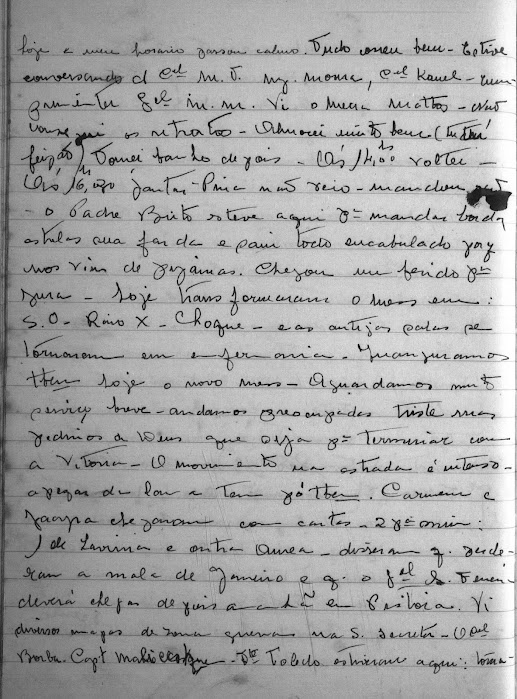 hoje a meu horario passou calmo. Tudo correu bem - Estive
conversando c/ Cel M. D. Mj. Cel
Gel M. M. Vi o Meira Mattos - não
consegui os retratos - Almocei muito bem (
feijão) Tomei banho depois - Ás 14,00 hs voltei -
Ás 16,00 hs jantar - Pina não veio - mandou
- o Padre Brito esteve aqui pª mandar bordar
estrelas sua farda e saiu todo encabulado porq
nos viu de pijamas. Chegou um ferido pª
- hoje transformaram o mess em:
S.O - Raio X - Choque - e as antigas salas se
tornaram em enfermaria. Inauguramos
hoje o novo mess - Aguardamos muito
serviço breve - andamos preocupadas triste mas
pedimos a Deus que seja pª terminar com
a Vitoria - O movimento na estrada é intenso -
apezar da lama tem pó Carmem e
Jacyra chegaram com cartas - 2 pª mim:
1 de Lavinia e outra Aurea - disseram q. perde-
ram a mala de Janeiro e q. o Gel
deverá chegar depois amanhã em Pistoia. Vi
diversos mapas de zona guerra na S. Secreta - O Cel
Borba - Capt - Toledo estiveram aqui: toma-